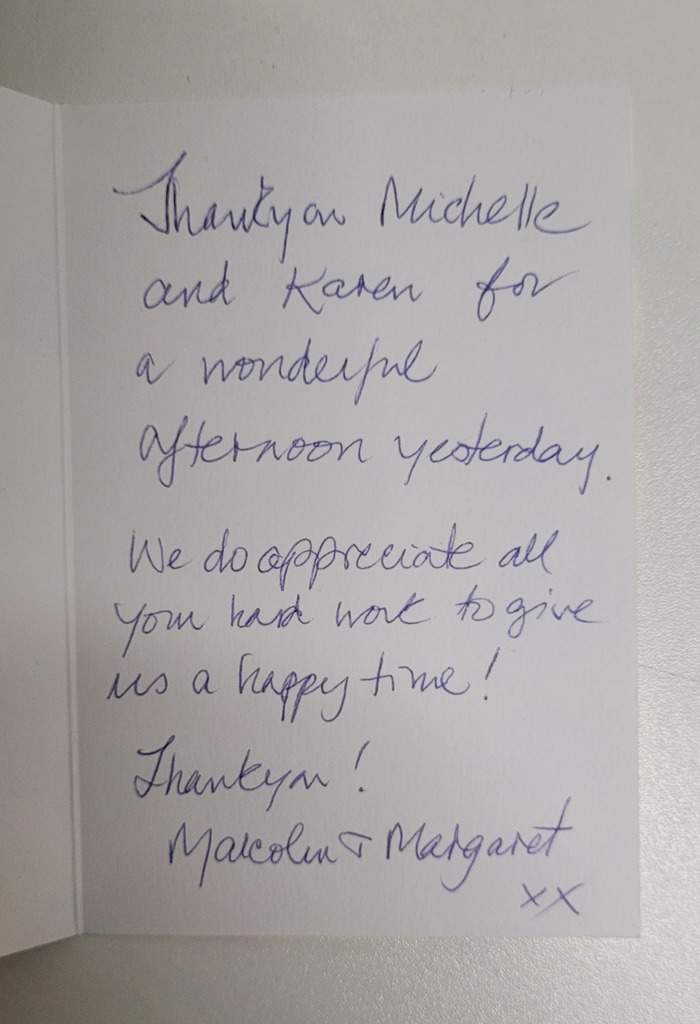 Thankyou Michelle
and Karen for
a wonderful
afternoon yesterday.
We do appreciate all
your hard work to give
us a happy time!
Thankyou!
Malcolm & Margaret
xx